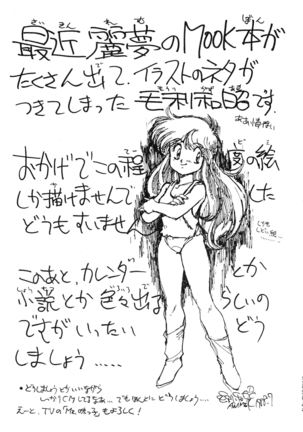 最近 麗夢のMOOK本が
たくさん出て、イラストのネタが
つきてしまった 毛利和昭です。
おかげでこの程度の絵
しか描けませんでした
どうもすいません
このあと、カレンダーとか
小説とか 色々出るらしいの
ですが いったい どう
しましょう.....
・どうしましょうとかいいながら
えーと、TVの「味っ子」もよろしく!